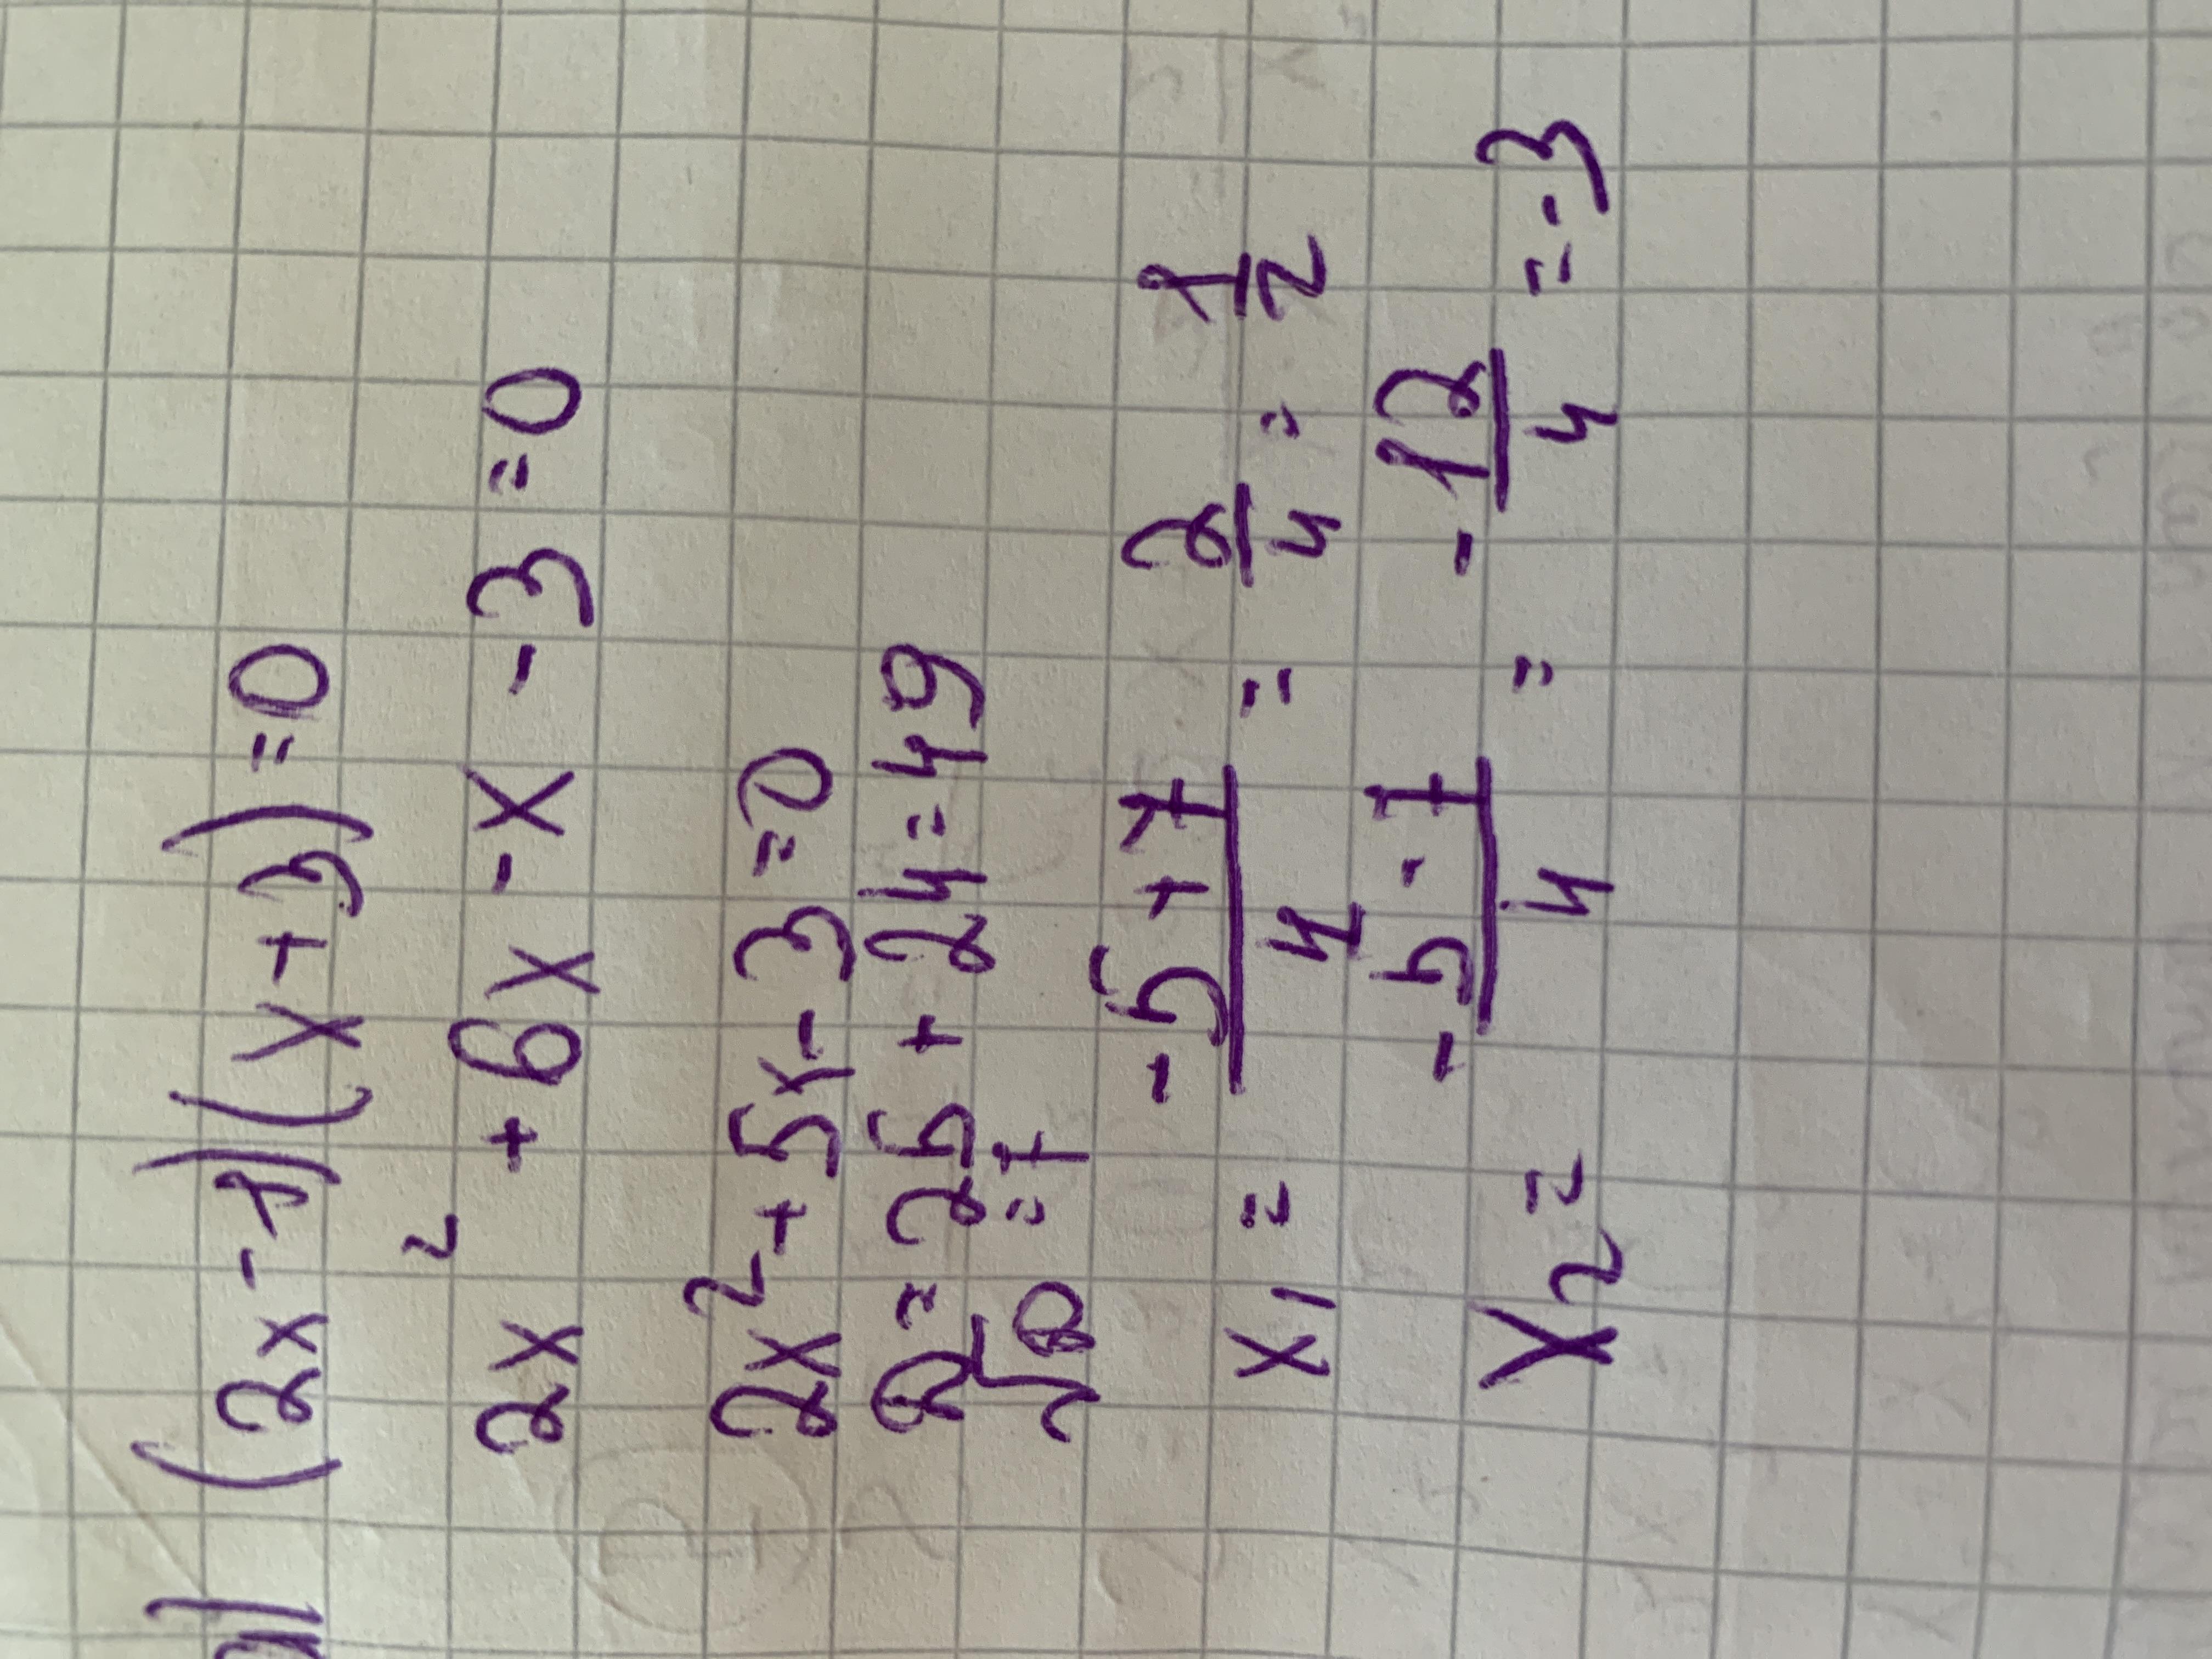 (2x-1)(x+3)=0
2x² +6x -x -3=0
2x²+5x-3=0
D=25+24=49
√D=7
x1 = (-5+7)/4 = 2/4 = 1/2
x2 = (-5-7)/4 = -12/4 =-3